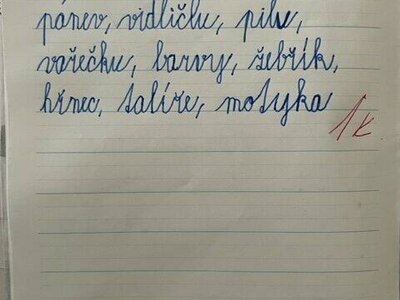 pánev, vidličku, pilu,
vařečku, barvy, žebřík,
hrnec, talíře, motyka
1k